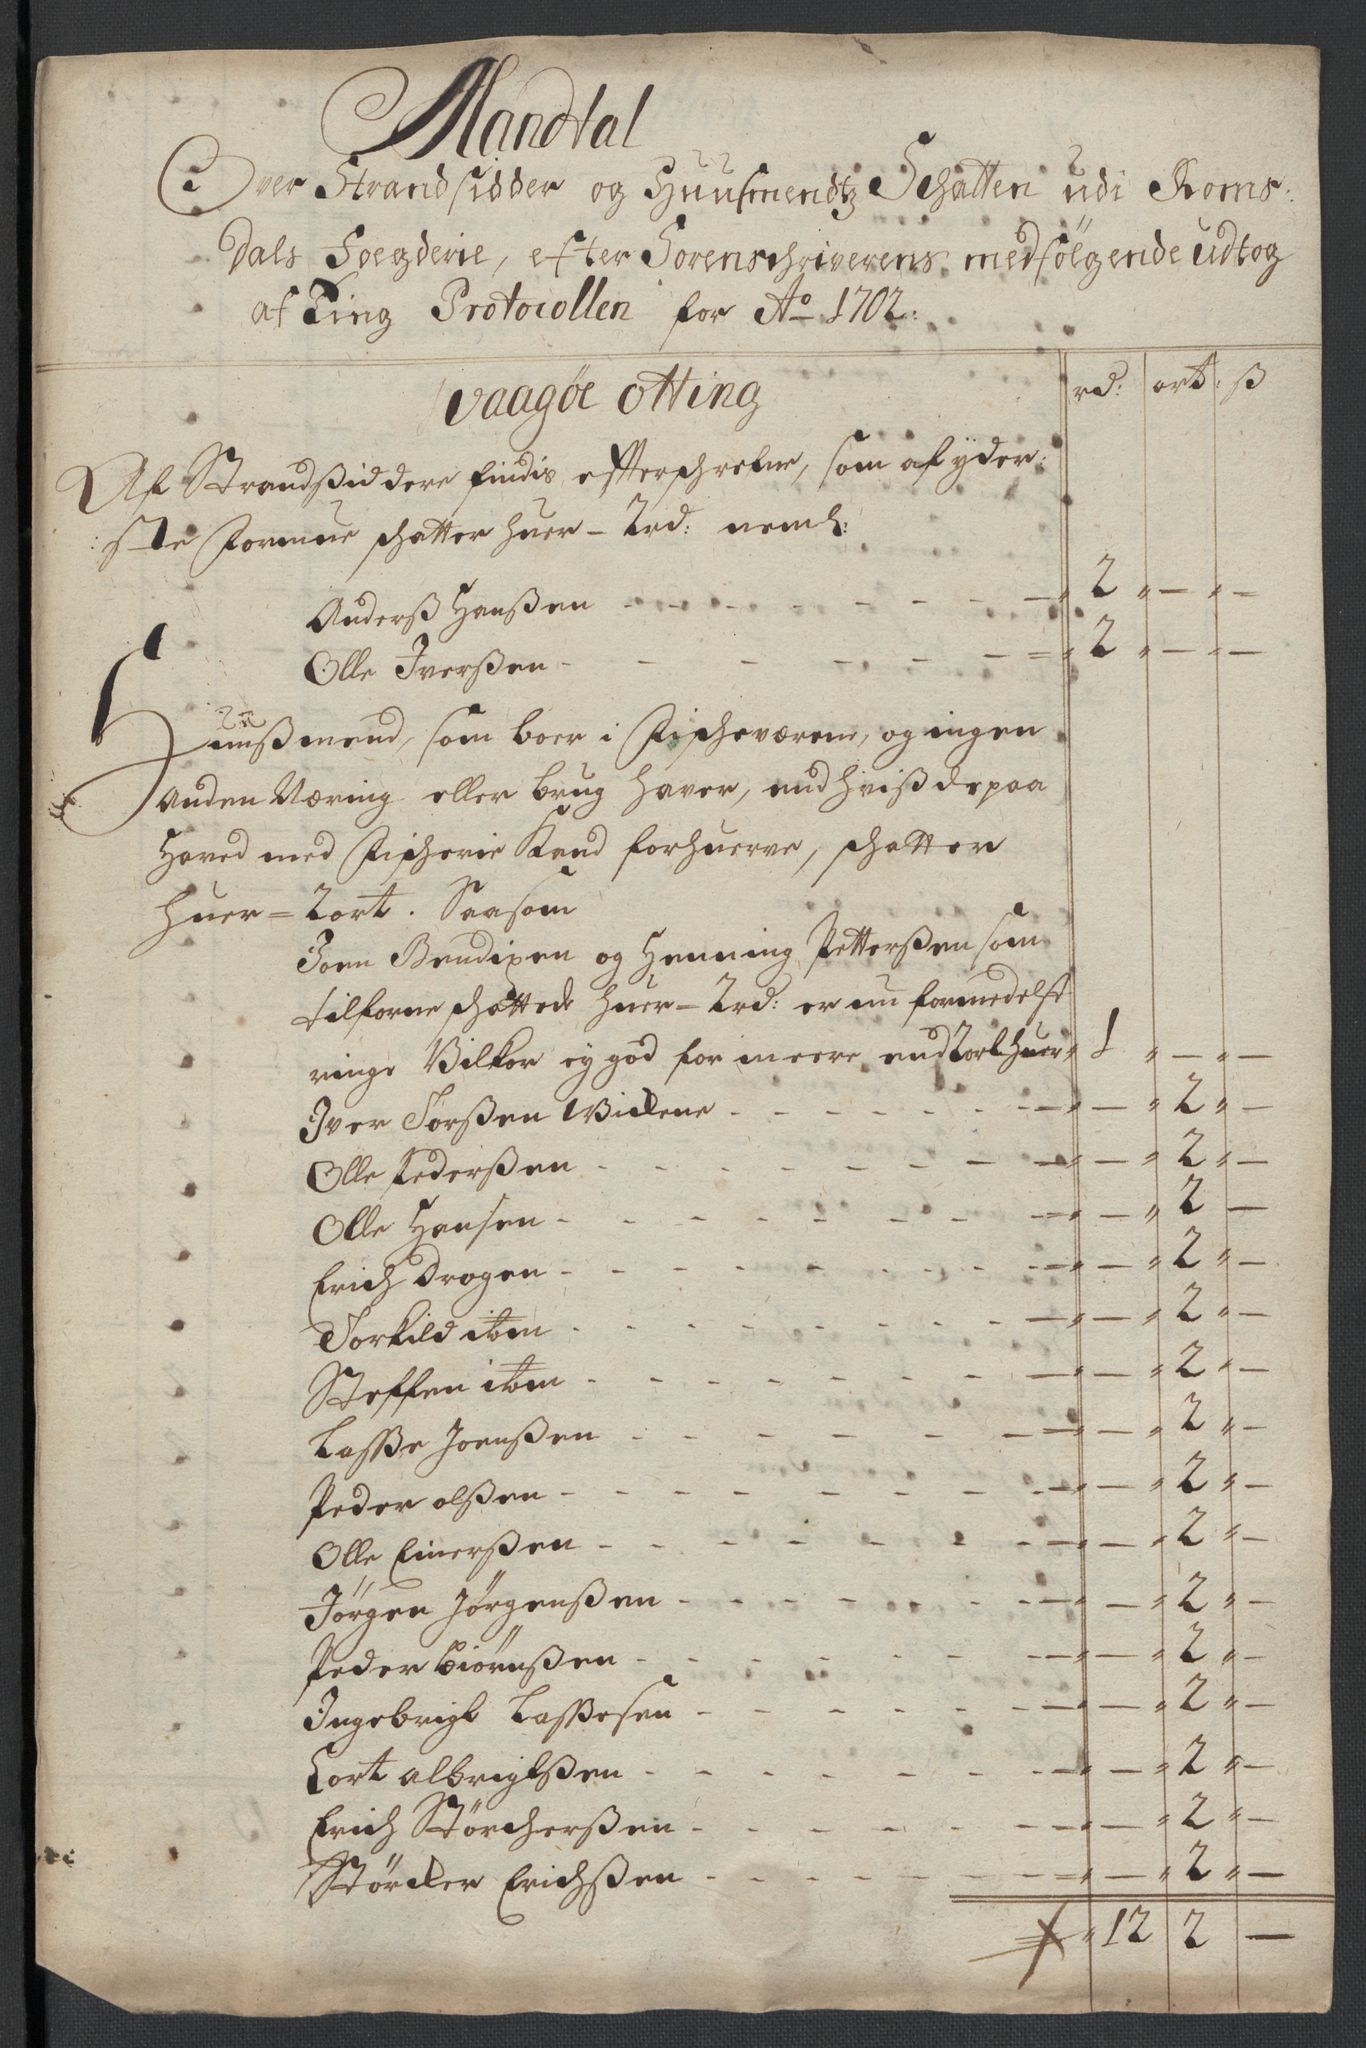 Mandtal
Over Strandsidder og Huusmendtz Schatten udi Roms:
dals Foegderie, efter Sorenschriverens medfølgende udtog
af Ting Protocollen for Ao 1702:
rd: ort: ß
Vaagøe otting
Af Strandßiddere findis effterschrefne, som af yder:
:ste Formue schatter huer - 2 rd: neml:
Anderß Hanßen - - - 2 " - " -
Olle Iverßen - - - 2 " - " -
Huußmend, som boer i Fischeværene, og ingen
anden Næring eller brug haver, end hviß de paa
Haved med Fischerie Kand forhuerve, schatter
huer = 2 ort. Saasom
Joen Bendixen og Henning Petterßen som
tilforne schattede huer = 2 rd: er nu formedelst
ringe Vilkor ey god for meere end 2 ort huer " 1 " - " -
Iver Torßen Videne - - - " - " 2 " -
Olle Pederßen - - - " - " 2 " -
Olle Hansen - - - " - " 2 -
Erich Drogen - - - " - " 2 " -
Torkild ibm - - - " - " 2 " -
Steffen ibm - - - " - " 2 " -
Laße Joenßen - - - " - " 2 " -
Peder olßen - - - " - " 2 " -
Olle Einerßen - - - " - " 2 " -
Jørgen Jørgenßen - - - " - " 2 " -
Peder biørnßen - - - " - " 2 " -
Ingebrigt Laßesen - - - " - " 2 " -
Cort albrigtßen - - - " - " 2 " -
Erich Størcherßen - - - " - " 2 " -
Størcker Erichßen - - - " - " 2 " -
" 12 2 -